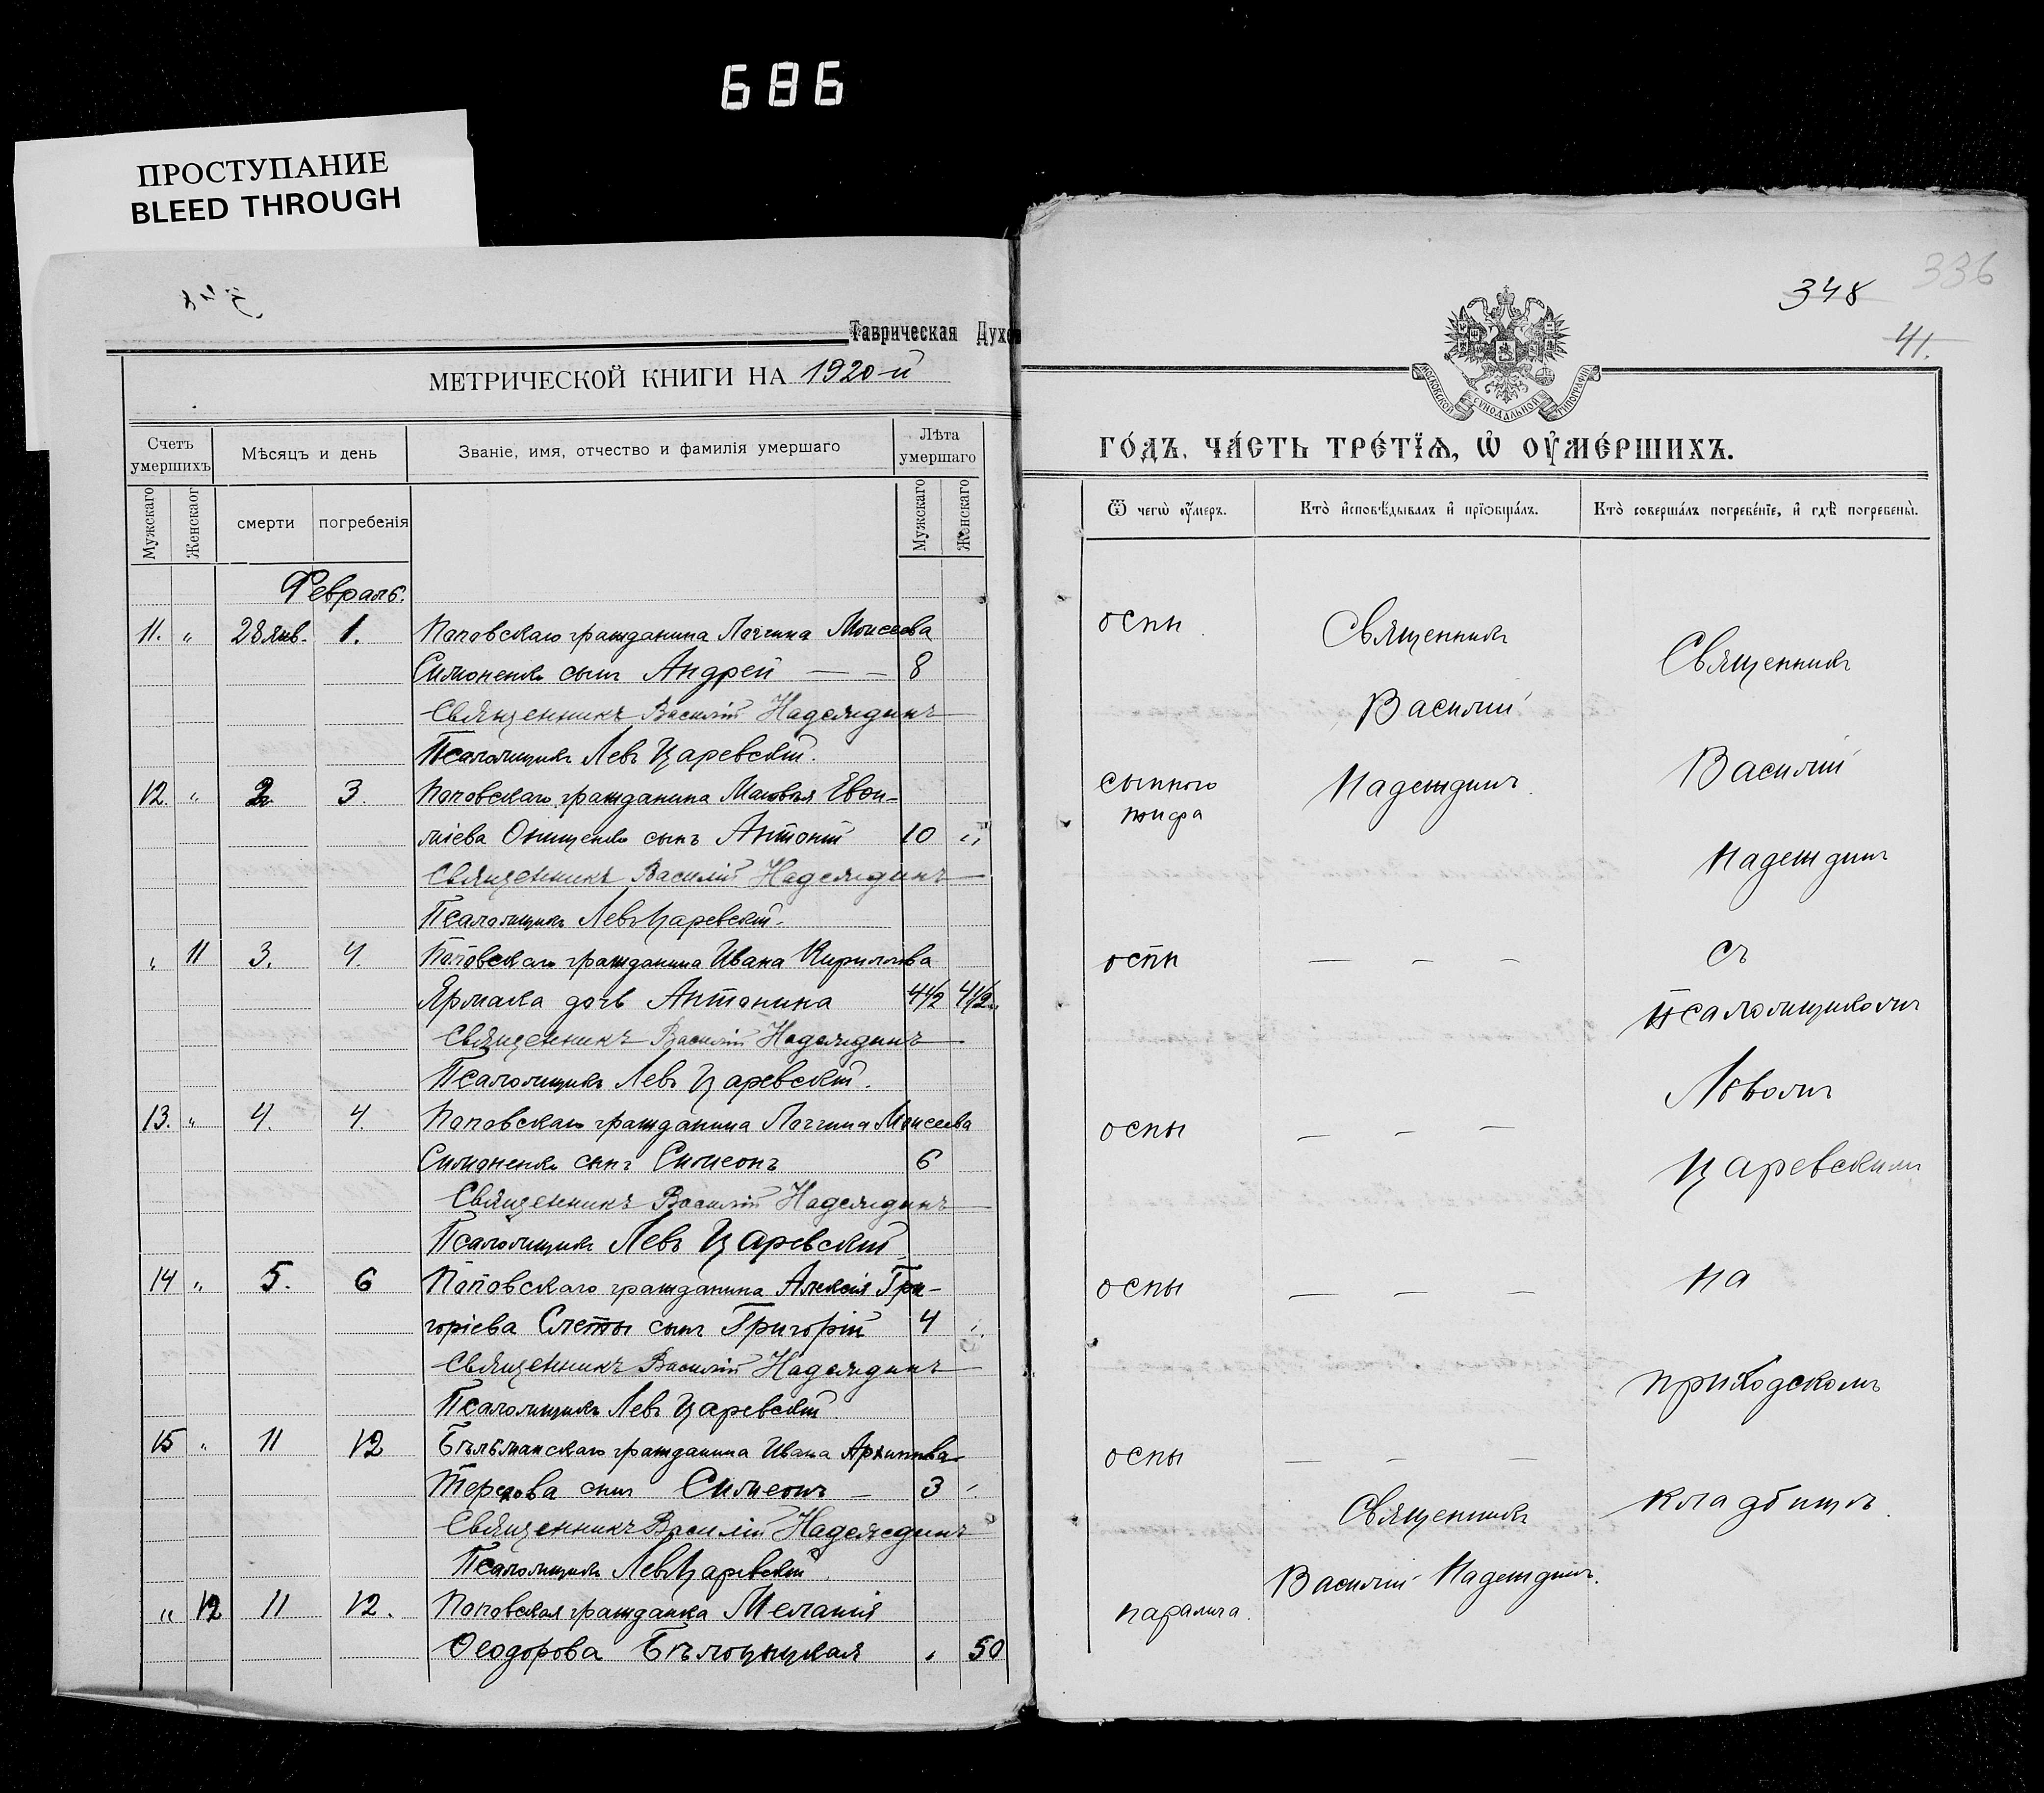 686
ПРОСТУПАНИЕ
BLEED THROUGH
Таврическая Духов
МЕТРИЧЕСКОЙ КНИГИ НА 1920-й
Счетъ умершихъ
Мѣсяцъ и день
Званіе, имя, отчество и фамилія умершаго
Лѣта умершаго
Мужскаго
Женскаго
смерти
погребенія
Мужскаго
Женскаго
Февраль.
11. " 28 Янв. 1. Поповскаго гражданина Логгина Моисеева
Симоненко сынъ Андрей — — 8
Священникъ Василій Надеждинъ
Псаломщикъ Левъ Царевскій.
12. " 2. 3. Поповскаго гражданина Маковея Евои-
міева Онищенко сынъ Антоній 10 "
Священникъ Василій Надеждинъ
Псаломщикъ Левъ Царевскій.
" 11 3. 4. Поповскаго гражданина Ивана Кириллова
Ярмака дочь Антонина 4½ 4½
Священникъ Василій Надеждинъ
Псаломщикъ Левъ Царевскій.
13. " 4. 4. Поповскаго гражданина Логгина Моисеева
Симоненко сынъ Симеонъ 6
Священникъ Василій Надеждинъ
Псаломщикъ Левъ Царевскій
14 " 5. 6 Поповскаго гражданина Алексія Гри-
горіева Слеты сынъ Григорій 4
Священникъ Василій Надеждинъ
Псаломщикъ Левъ Царевскій.
15 " 11 12 Бѣльманскаго гражданина Ивана Архипова
сынъ Симеонъ — 3
Священникъ Василій Надеждинъ
Псаломщикъ Левъ Царевскій
" 12 11 12. Поповская гражданка Меланія
Ѳеодорова 50
336
348
41.
МОСКОВСКОЙ СѴНОДАЛЬНОЙ ТИПОГРАФІИ
ГО́ДЪ, ЧА́СТЬ ТРЕ́ТЇѦ, Ѡ҆ ОУ҆МЕ́РШИХЪ.
Ѿ чегѡ̀ оу҆́меръ.
Кто̀ и҆сповѣ́дывалъ и҆ прїѡбща́лъ.
Кто̀ соверша́лъ погребе́нїе, и҆ гдѣ̀ погребены̀.
оспы
Священникъ
Священникъ
Василій
Василій
сыпного
тифа
Надеждинъ.
Надеждинъ
оспы — — —
съ
Псаломщикомъ
Львомъ
оспы — — —
Царевскимъ
на
оспы — — —
приходскомъ
оспы — — —
Священникъ
кладбищѣ.
Василій Надеждинъ.
паралича.